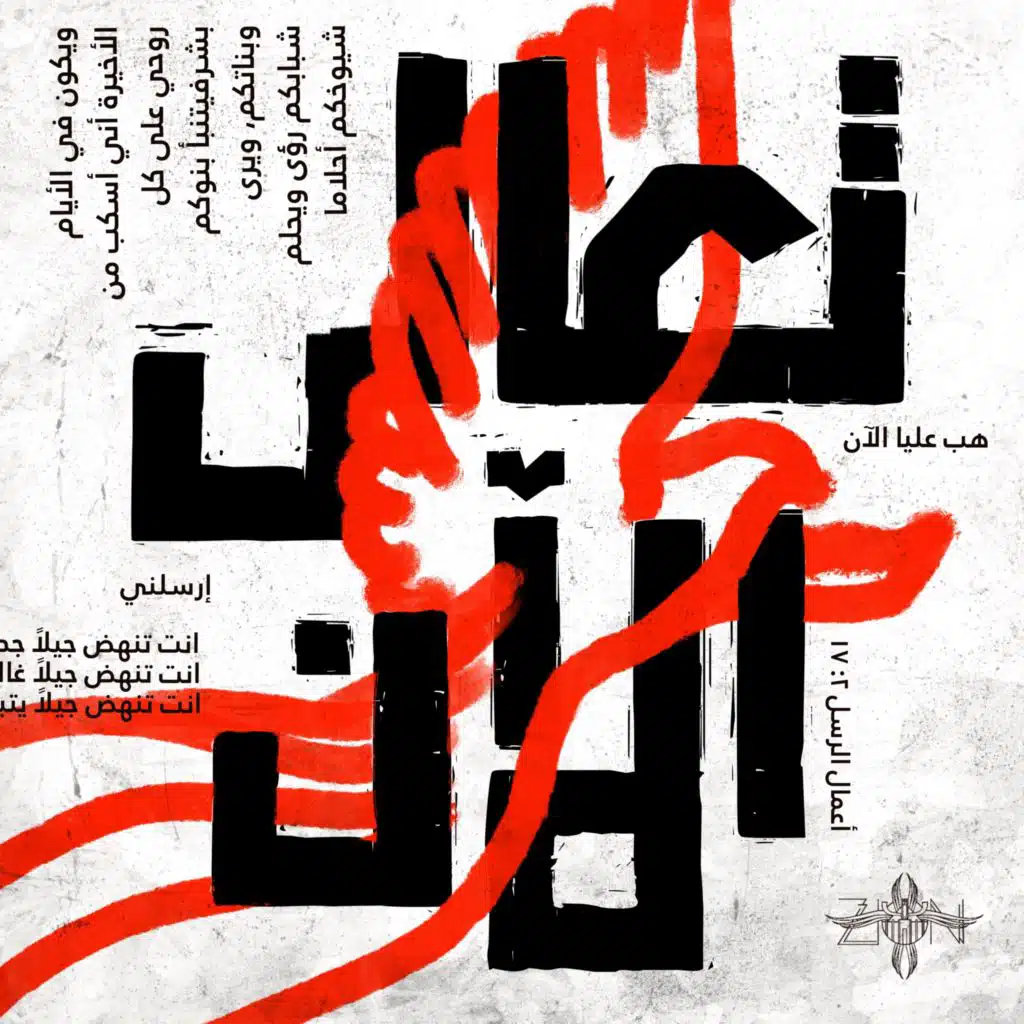 ويكون في الأيام
الأخيرة أني أسكب من
روحي على كل
بشرفيتنبأ بنوكم
وبناتكم، ويرى
شبابكم رؤى ويحلم
شيوخكم أحلاما
تعال
الآن
هب عليا الآن
إرسلني
انت تنهض جيلاً
انت تنهض جيلاً
انت تنهض جيلاً
أعمال الرسل ٢: ١٧
ZION